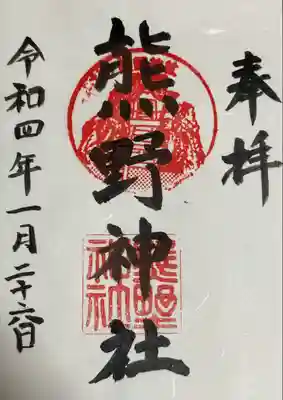 奉拝
熊野神社
令和四年一月二十六日
熊野
神社